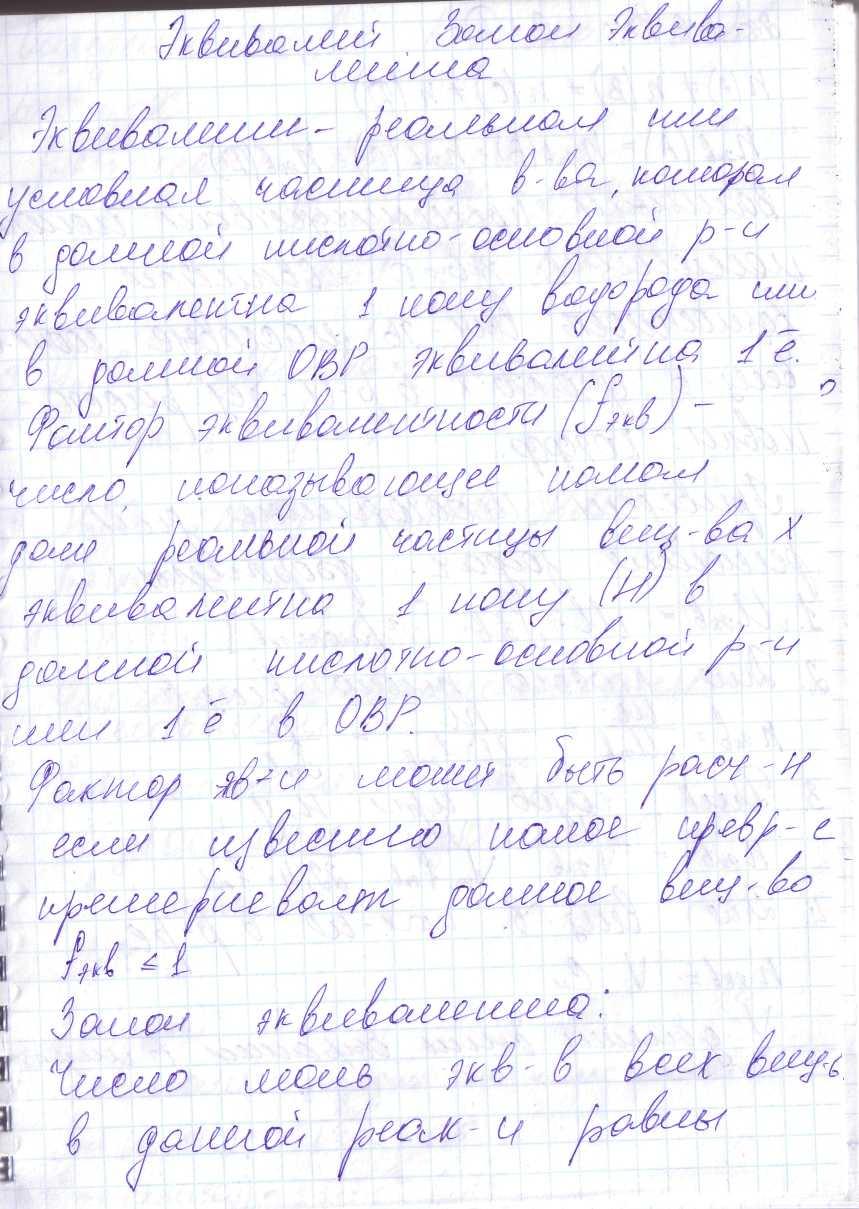 Эквивалент Закон Эквива-
лента
Эквивалент - реальная или
условная частица в-ва, которая
в данной кислотно-основной р-и
эквивалентна 1 иону водорода или
в данной ОВР эквивалентна 1ē.
Фактор эквивалентности (fэкв) -
число, показывающее какая
доля реальной частицы вещ-ва X
эквивалентна 1 иону (H) в
данной кислотно-основной р-и
или 1ē в ОВР.
Фактор эв-и может быть расч-н
если известно какое превр-е
претерпевает данное вещ-во
fэкв ≤ 1
Закон эквивалента:
Число моль экв-в всех вещ-в
в данной реак-и равны